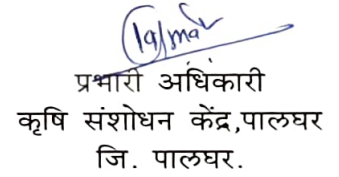 प्रभारी अधिकारी
कृषि संशोधन केंद्र,पालघर
जि. पालघर.